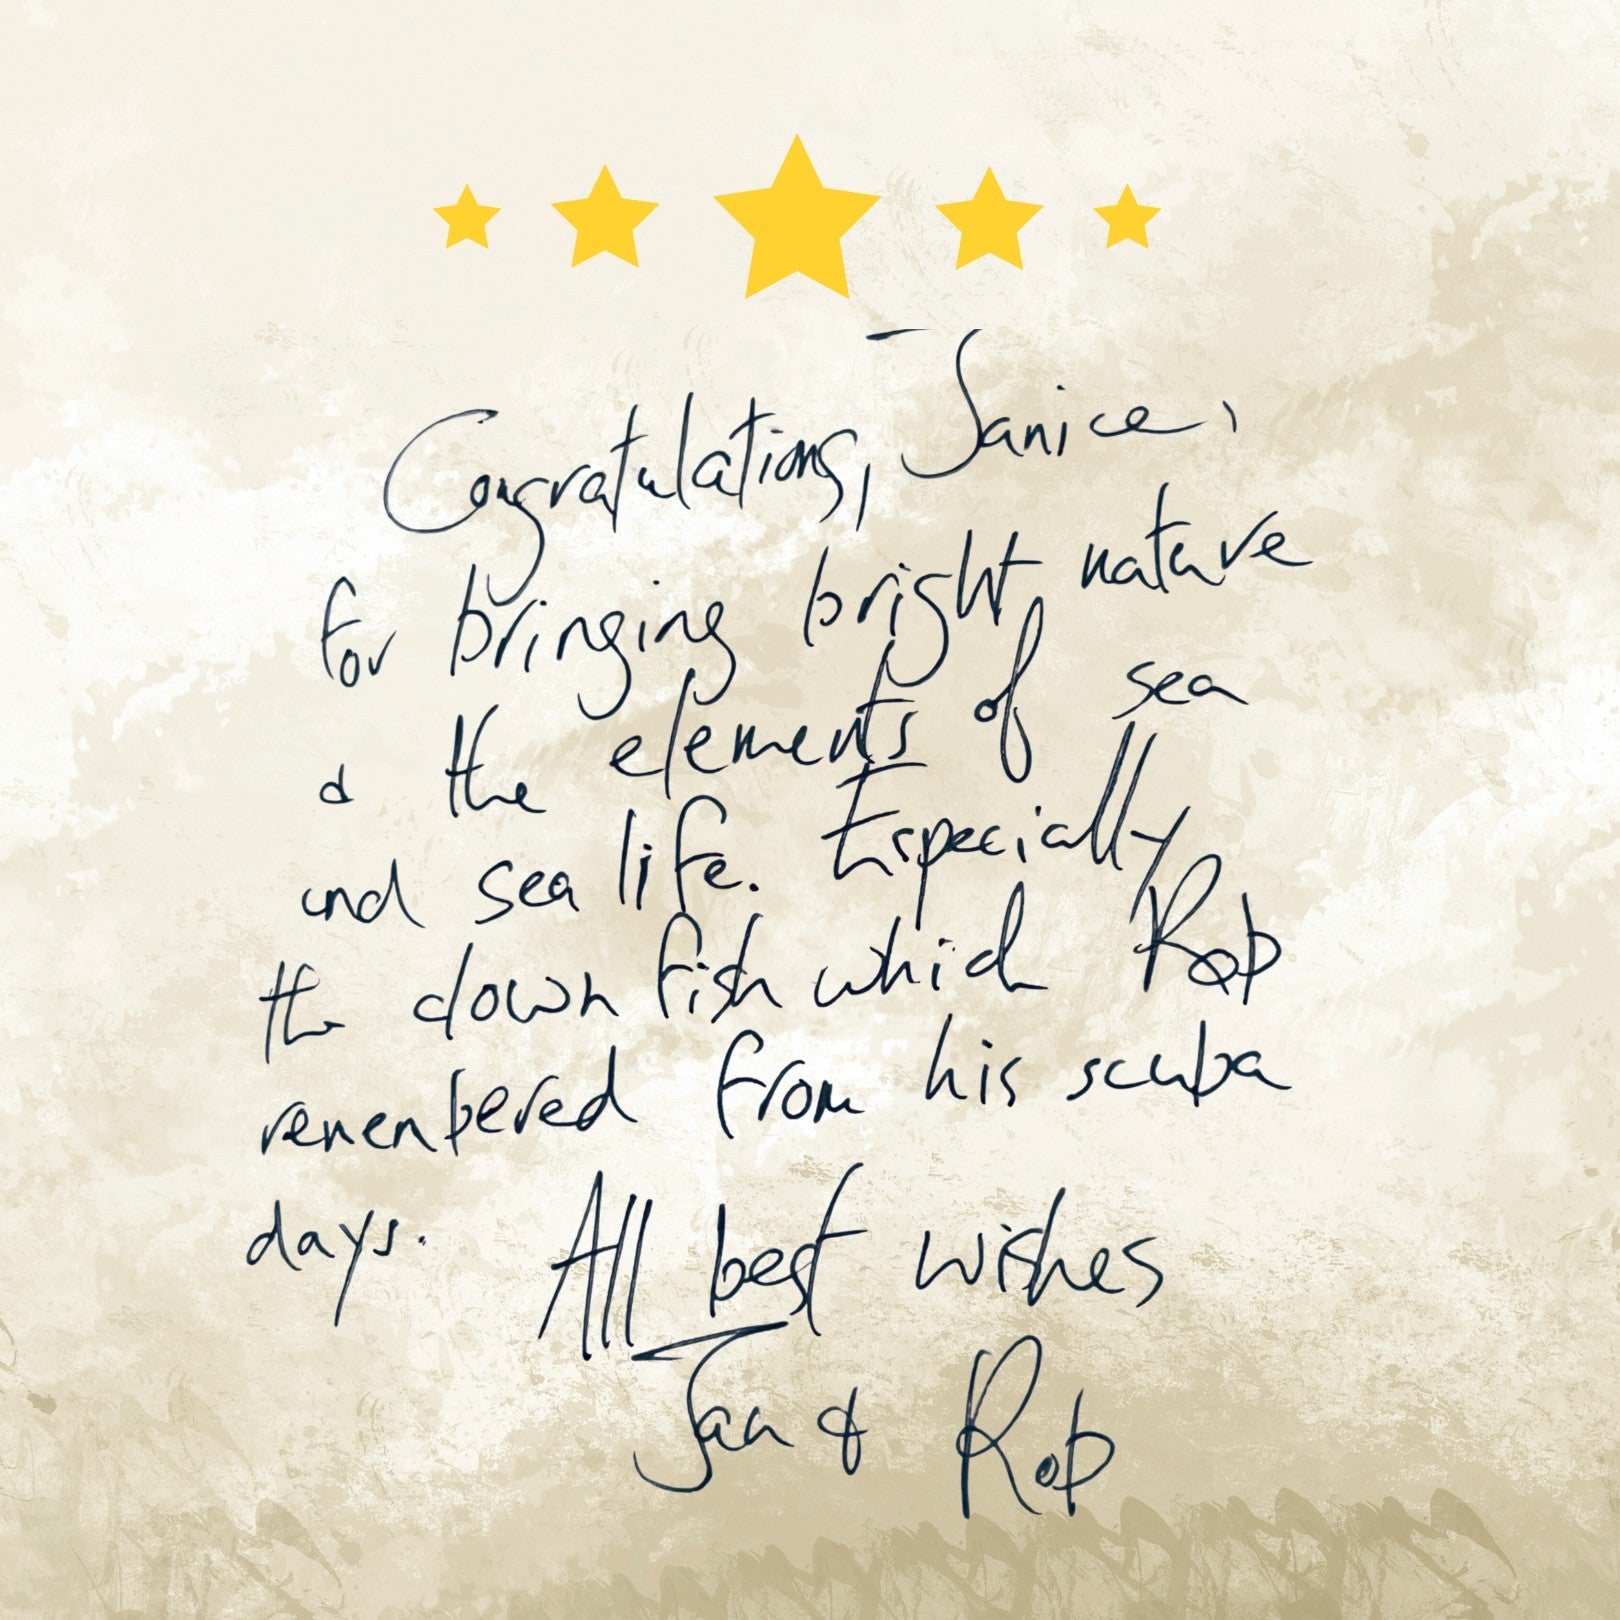 Congratulations, Janice,
for bringing bright nature
& the elements of sea
and sea life. Especially
the clown fish which Rob
remembered from his scuba
days. All best wishes
Jan & Rob